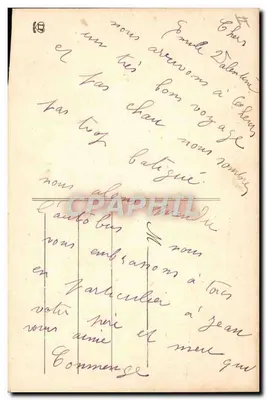 Chers
Emile Valentine
nous arrivons à
un très bon voyage
et pas chau nous sommes
pas trop fatigué
nous alons prendre
l'autobus nous
vous embrassons à tous
en particulier à Jean
votre père et mere qui
vous aime
Commenge
CARTHAPHIL